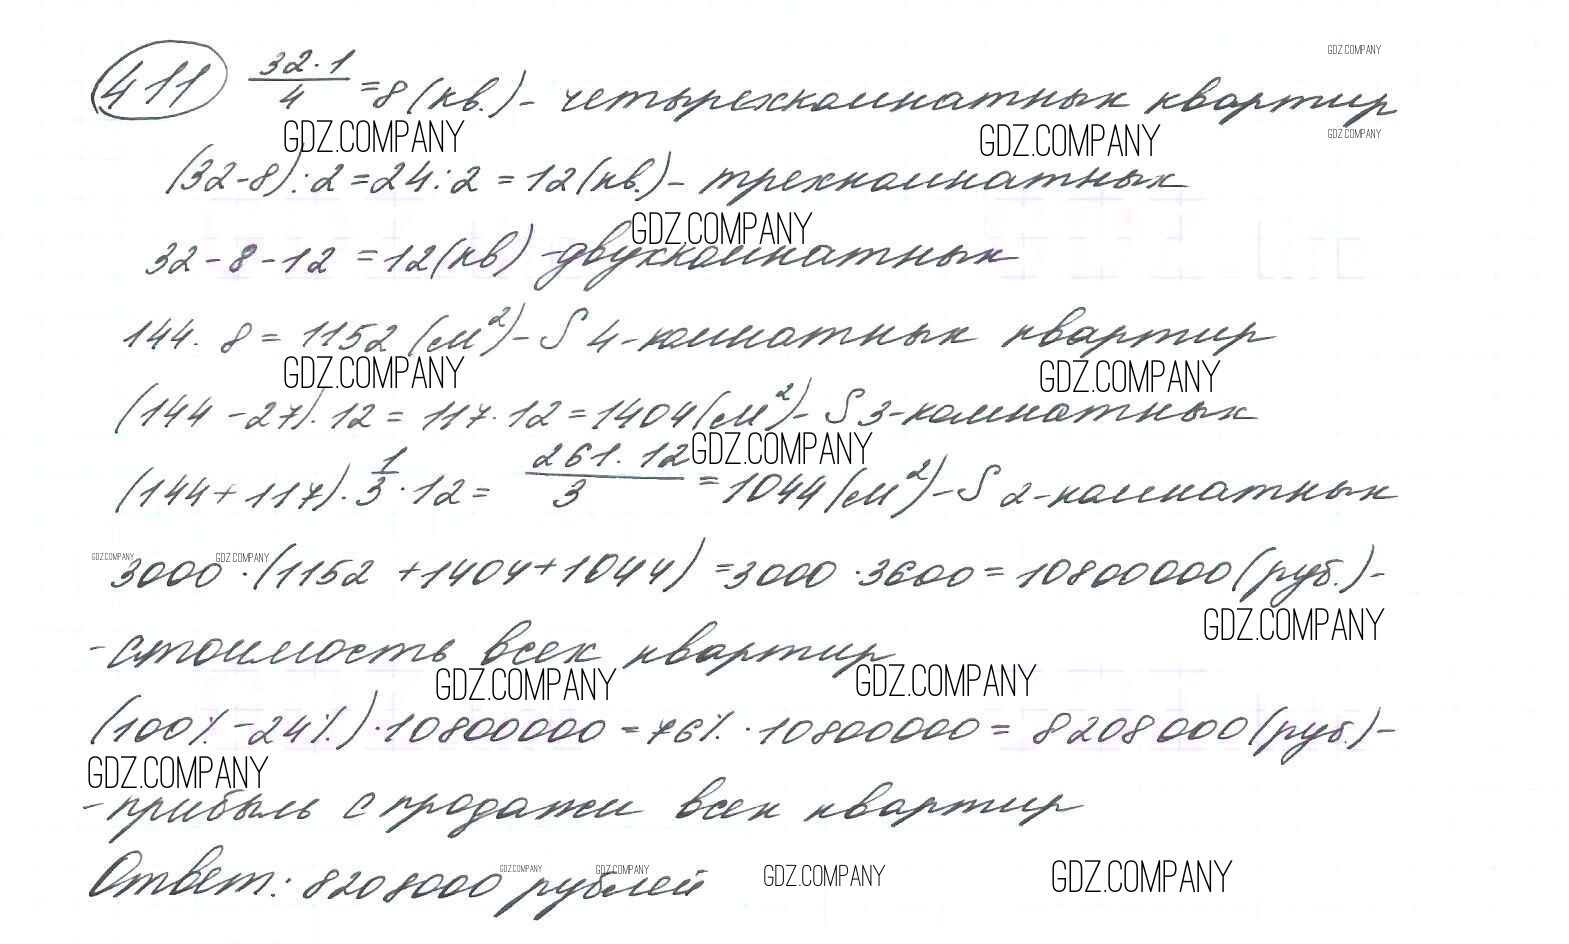 GDZ.COMPANY
411 32·1/4 =8(кв.)- четырехкомнатных квартир
GDZ.COMPANY GDZ.COMPANY GDZ.COMPANY
(32-8):2=24:2=12(кв.)- трехкомнатных
GDZ.COMPANY
32-8-12=12(кв) -двухкомнатных
144·8=1152(см²)-S 4-комнатных квартир
GDZ.COMPANY GDZ.COMPANY
(144-27)·12=117·12=1404(см²)-S 3-комнатных
GDZ.COMPANY
(144+117)·1/3·12= 261·12/3 =1044(см²)-S 2-комнатных
GDZ.COMPANY GDZ.COMPANY
3000·(1152+1404+1044)=3000·3600=10800000(руб.)-
GDZ.COMPANY
-стоимость всех квартир
GDZ.COMPANY GDZ.COMPANY
(100%-24%)·10800000=76%·10800000=8208000(руб.)-
GDZ.COMPANY
-прибыль с продажи всех квартир
GDZ.COMPANY GDZ.COMPANY GDZ.COMPANY GDZ.COMPANY
Ответ: 8208000 рублей